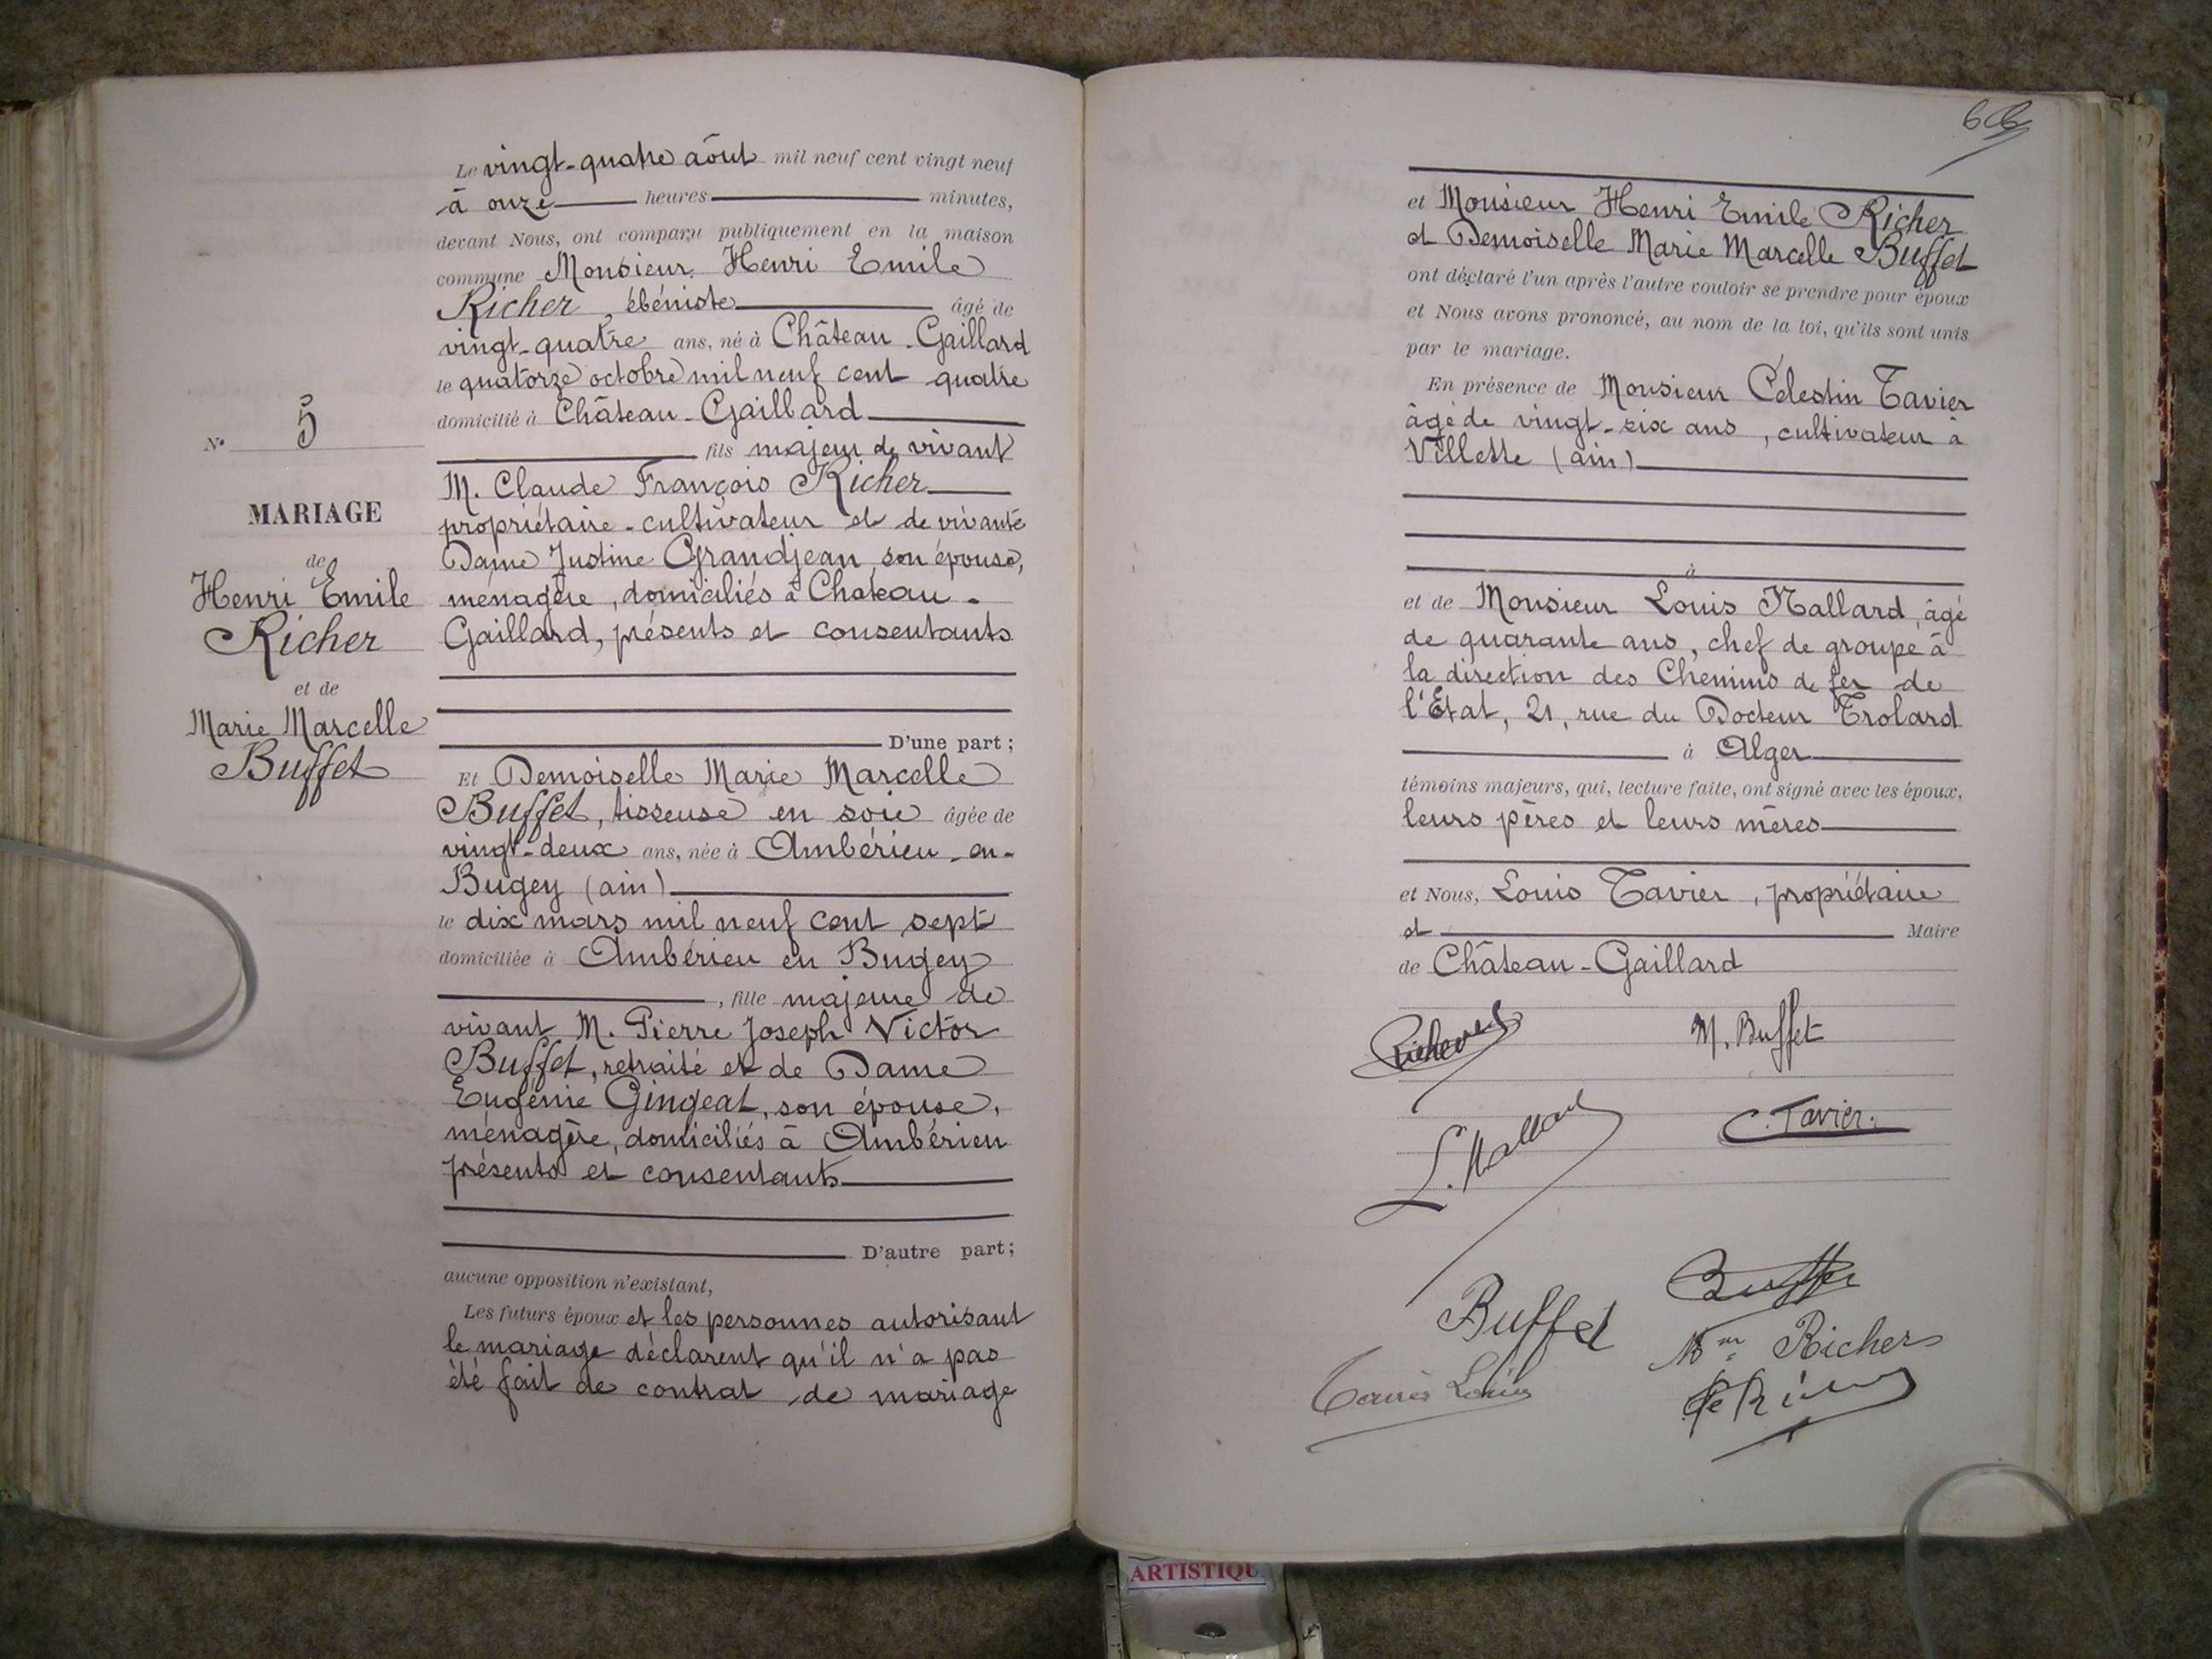 Le vingt-quatre août mil neuf cent vingt neuf
à onze heures minutes,
devant Nous, ont comparu publiquement en la maison
commune Monsieur Henri Emile
Richer, ébéniste âgé de
vingt-quatre ans, né à Château-Gaillard
le quatorze octobre mil neuf cent quatre
domicilié à Château-Gaillard
fils majeur de vivant
M. Claude François Richer
propriétaire-cultivateur et de vivante
Dame Justine Grandjean, son épouse,
ménagère, domiciliés à Chateau-
Gaillard, présents et consentants
D'une part;
Et Demoiselle Marie Marcelle
Buffet, tisseuse en soie âgée de
vingt-deux ans, née à Ambérieu-en-
Bugey (ain)
le dix mars mil neuf cent sept
domiciliée à Ambérieu en Bugey
, fille majeure de
vivant M. Pierre Joseph Victor
Buffet, retraité et de Dame
Eugénie Gingeat, son épouse,
ménagère, domiciliés à Ambérieu
présents et consentants
D'autre part;
aucune opposition n'existant,
Les futurs époux et les personnes autorisant
le mariage déclarent qu'il n'a pas
été fait de contrat de mariage
N° 5
MARIAGE
de
Henri Emile
Richer
et de
Marie Marcelle
Buffet
et Monsieur Henri Emile Richer
et Demoiselle Marie Marcelle Buffet
ont déclaré l'un après l'autre vouloir se prendre pour époux
et Nous avons prononcé, au nom de la loi, qu'ils sont unis
par le mariage.
En présence de Monsieur Célestin Tavier
âgé de vingt-six ans, cultivateur à
Villette (ain)
à
et de Monsieur Louis Mallard, âgé
de quarante ans, chef de groupe à
la direction des Chemins de fer de
l'Etat, 21, rue du Docteur Trolard
à Alger
témoins majeurs, qui, lecture faite, ont signé avec les époux,
leurs pères et leurs mères
et Nous, Louis Tavier, propriétaire
et Maire
de Château-Gaillard
M. Buffet
L. Mallard
C. Tavier.
Buffet
Buffet
Richer
Tavier Louis
ARTISTIQU